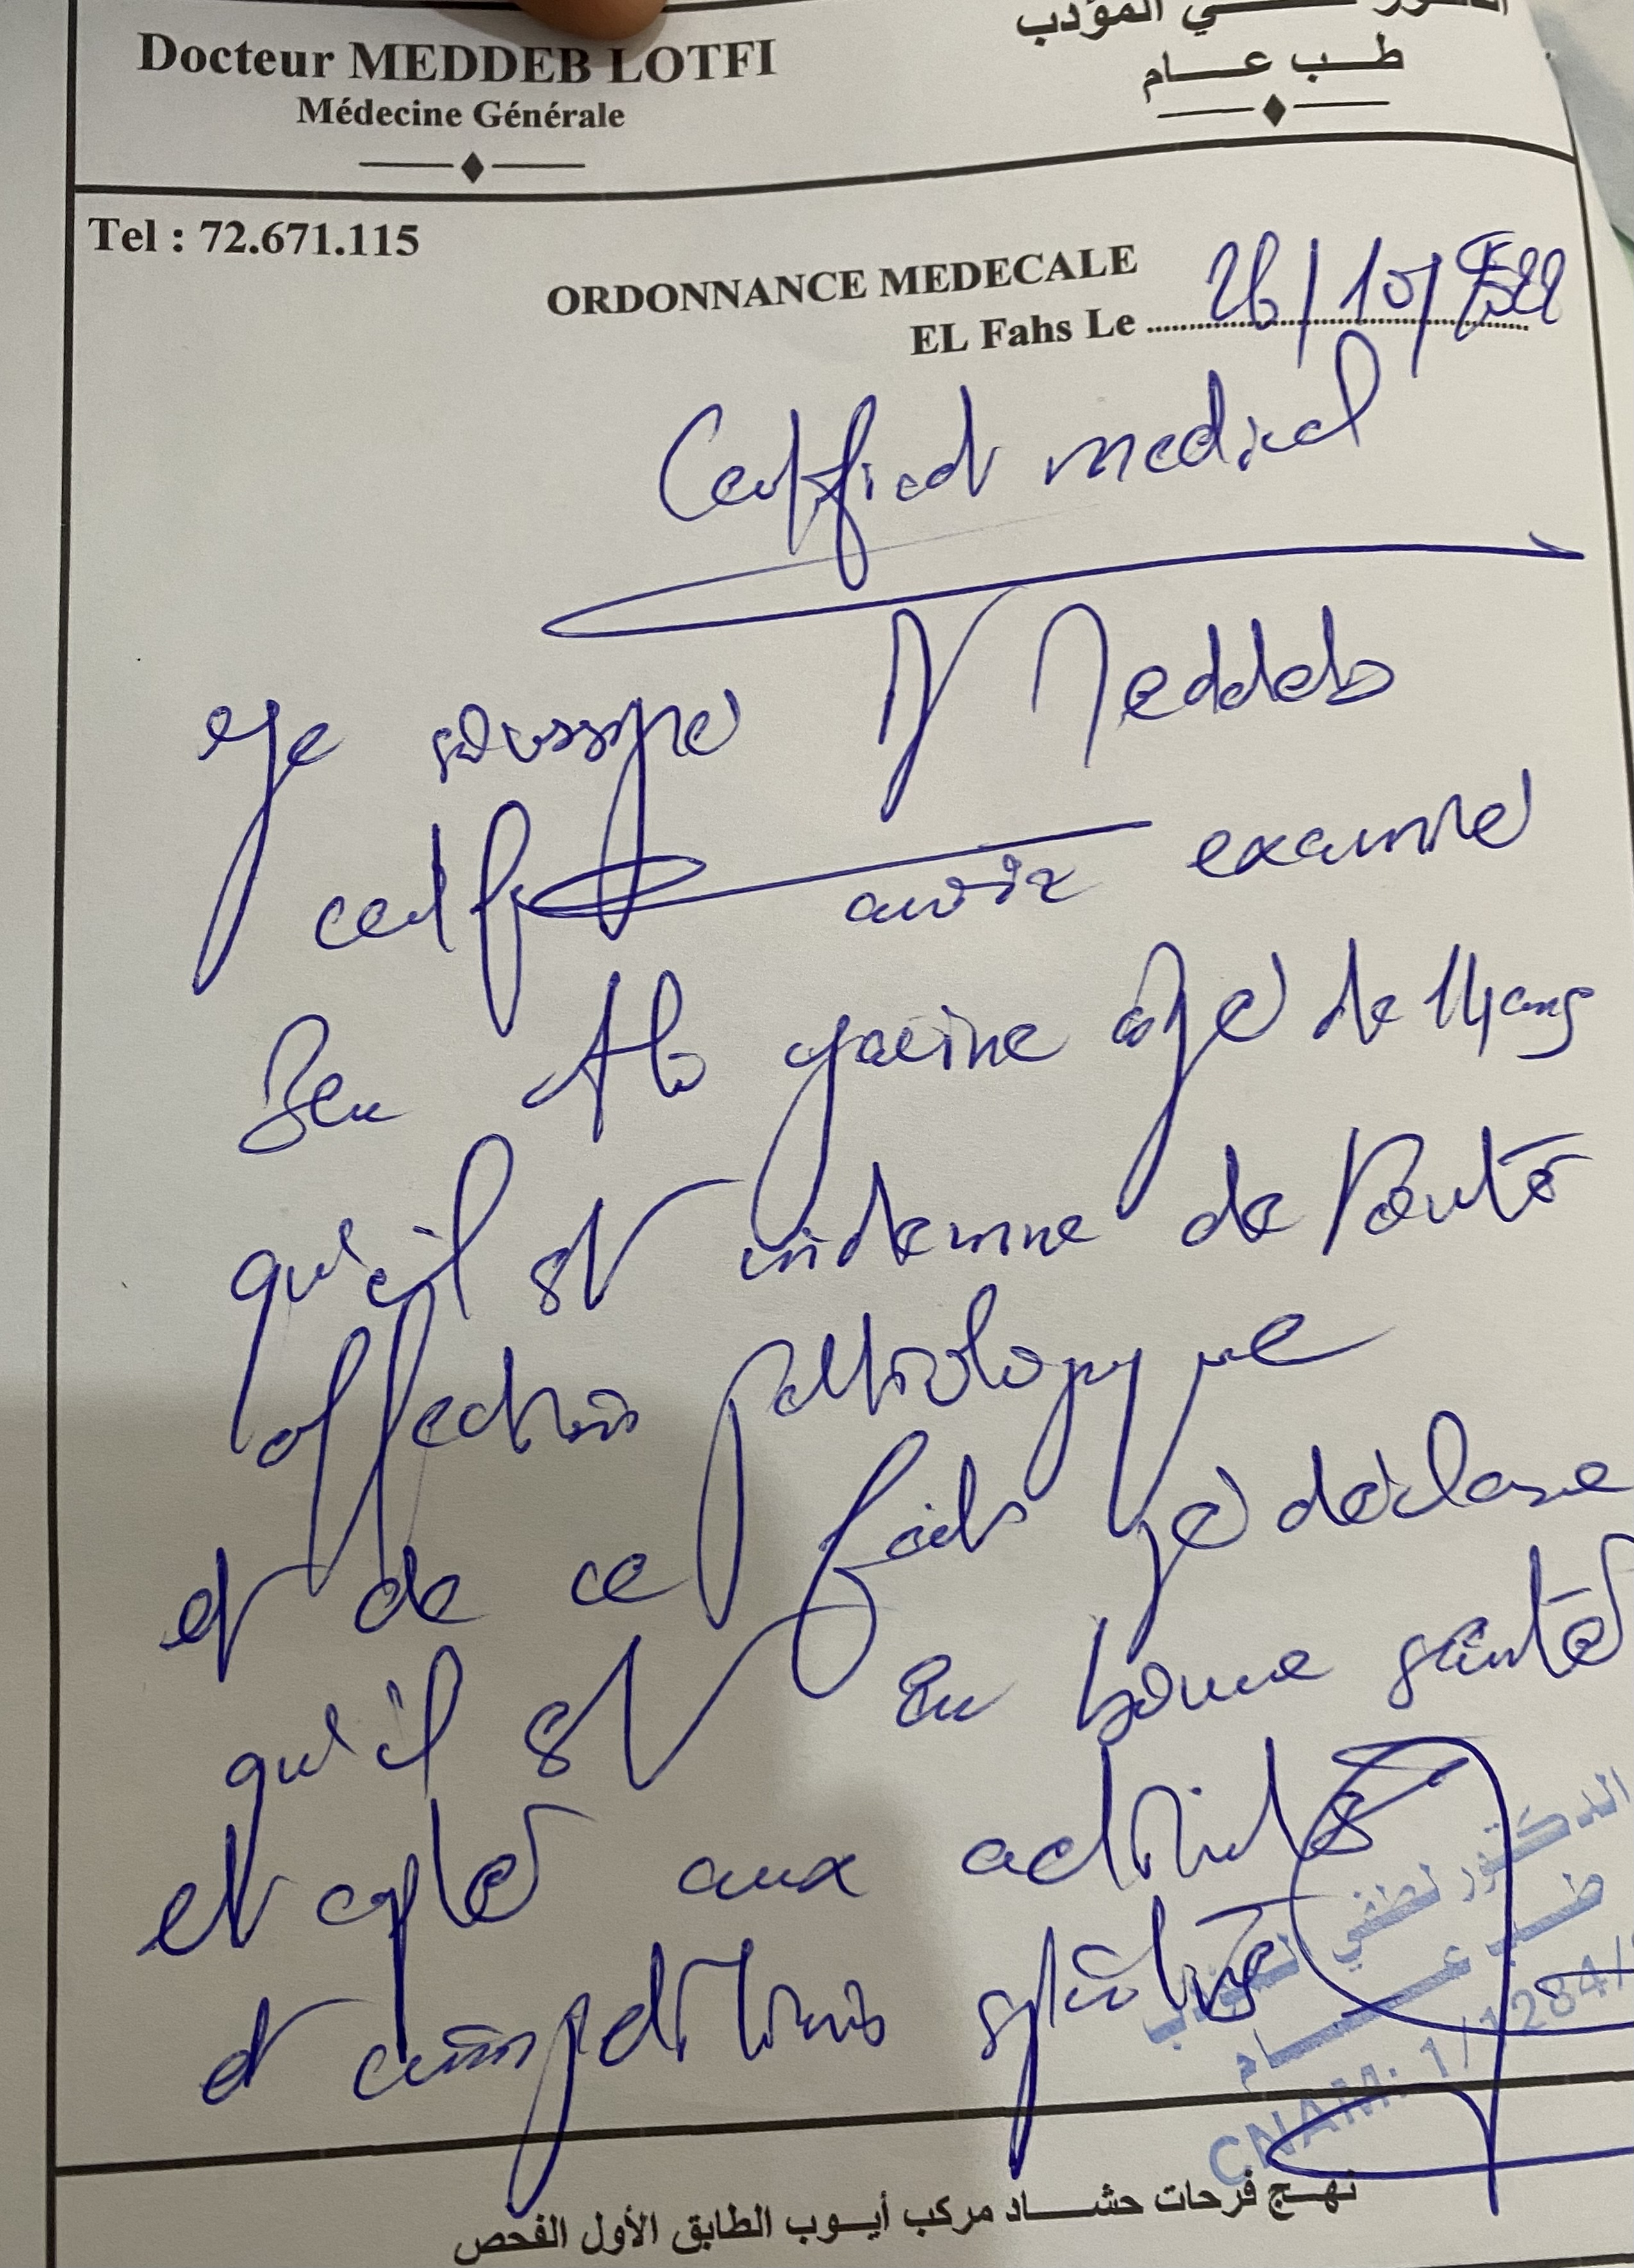 Docteur MEDDEB LOTFI
Médecine Générale
المؤدب
طـب عـــام
Tel : 72.671.115
ORDONNANCE MEDECALE
EL Fahs Le 26/10/
Certificat medical
Je soussigné Dr Meddeb
certifie avoir examiné
Ben yacine âgé de 14 ans
qu'il est indemne de toute
affection pathologique
et de ce fait je déclare
qu'il est en bonne santé
et apte aux activités
et compétitions sportives
الدكتور لطفي المؤدب
طـب عـــام
CNAM: 1/1284/
نهـج فرحات حشـــاد مركب أيـــوب الطابق الأول الفحص